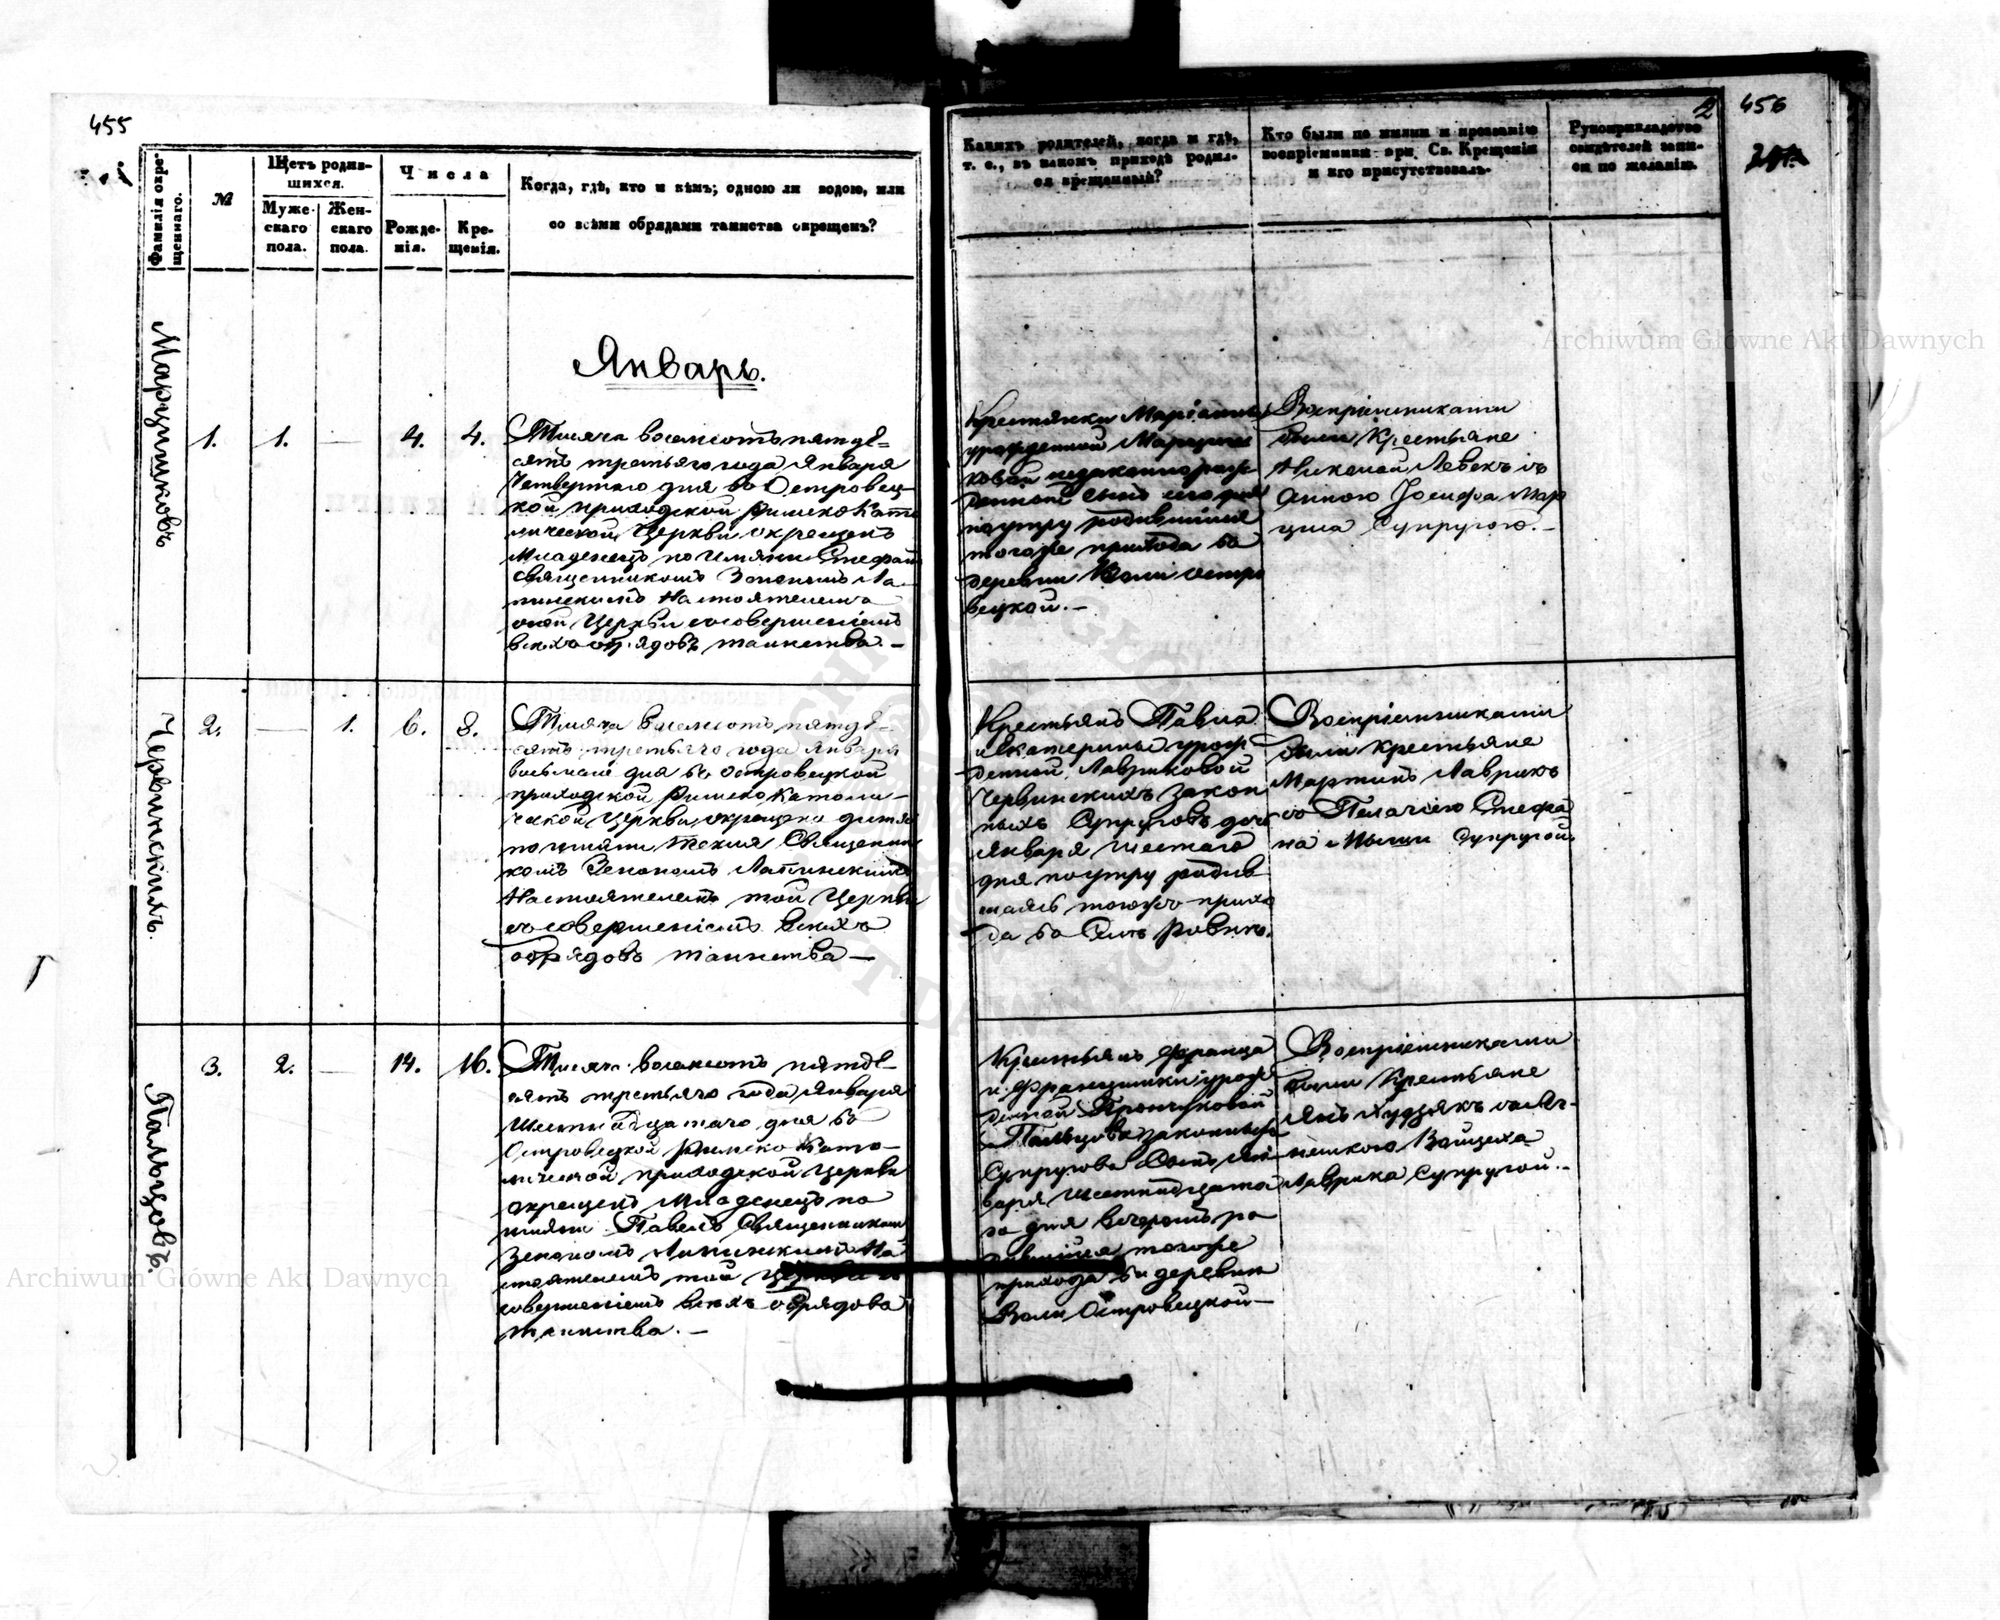 455
Фамилія окре-
щеннаго.
№
Щетъ родив-
шихся.
Муже-
скаго
пола.
Жен-
скаго
пола.
Числа
Рожде-
нія.
Кре-
щенія.
Когда, гдѣ, кто и кѣмъ; одною ли водою, или
со всѣми обрядами таинства окрещенъ?
Январь.
Марцишковъ
1.
1.
—
4.
4.
Тысяча восемсотъ пятде-
сятъ третьяго года Января
Четвертаго дня во Островец-
кой приходской Римско Като
лической Церкви окрещенъ
Младенецъ по имяни Стефан
Священникомъ Зенономъ Ла-
пинскимъ Настоятелемъ
оной Церкви со совершеніемъ
всѣхъ обрядовъ таинства. —
Червинскихъ.
2.
—
1.
6.
8.
Тысяча восемсотъ пятде-
сятъ третьяго года Января
восьмаго дня во Островецкой
приходской Римско Католи-
ческой Церкви окрещено дитя
по имяни Текля Священни
комъ Зенономъ Лапинскимъ
Настоятелемъ той Церкви
со совершеніемъ всѣхъ
обрядовъ таинства —
Пальцовъ.
3.
2.
—
14.
16.
Тысяча восемсотъ пятде-
сятъ третьяго года Января
Шестнадцатаго дня во
Островецкой Римско Като-
лической приходской Церкви
окрещенъ Младенецъ по
имяни Павелъ Священникомъ
Зенономъ Лапинскимъ На
стоятелемъ той Церкви со
совершеніемъ всѣхъ обрядовъ
таинства. —
2
456
Какихъ родителей, когда и гдѣ,
т. е., въ какомъ приходѣ родил-
ся крещенный?
Кто были по имяни и прозванію
воспріемники при Св. Крещеніи
и кто присутствовалъ.
Рукоприкладство
свидѣтелей запи-
си по желанію.
Крестянки Маріанны
урожденной Марциш
ковой незаконнорож
денной Сынъ сего дня
поутру родившійся
тогоже прихода во
деревни Воли Остро
вецкой. —
Воспріемниками
были Крестьяне
Николай Левекъ со
Анною Іосифа Мар
циша Супругою. —
Крестьянъ Павла
и Екатерины урож
денной Лавриковой
Червинскихъ закон
ныхъ Супруговъ дочь
Января шестаго
дня поутру родив
шаясь тогоже прихо
да во Селѣ Ровнѣ.
Воспріемниками
были Крестьяне
Мартинъ Лаврикъ
со Пелагіею Стефа
на Супругой.
Крестьянъ Франца
и Францишки урож
денной
Пальцовъ законныхъ
Супруговъ Сынъ Ян-
варя
го дня вечеромъ ро
дившійся тогоже
прихода во деревни
Воли Островецкой —
Воспріемниками
были Крестьяне
Янъ Худзякъ со Аг-
нешкою Войцеха
Лаврика Супругой. —
Archiwum Główne Akt Dawnych
Archiwum Główne Akt Dawnych